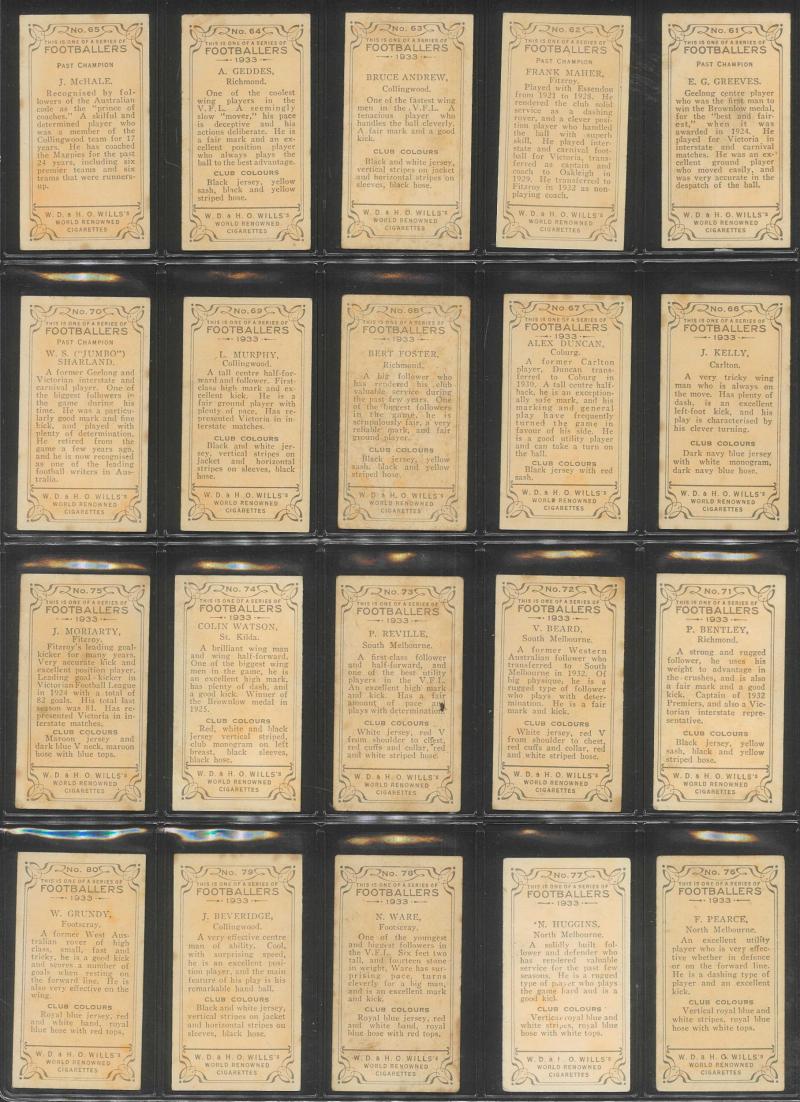 No. 65
THIS IS ONE OF A SERIES OF
FOOTBALLERS
PAST CHAMPION
J. McHALE.
Recognised by fol-
lowers of the Australian
code as the "prince of
coaches." A skilful and
determined player who
was a member of the
Collingwood team for 17
years. He has coached
the Magpies for the past
24 years, including six
premier teams and six
teams that were runners-
up.
W. D. & H. O. WILLS's
WORLD RENOWNED
CIGARETTES
No. 64
THIS IS ONE OF A SERIES OF
FOOTBALLERS
1933
A. GEDDES,
Richmond.
One of the coolest
wing players in the
V.F.L. A seemingly
slow "mover," his pace
is deceptive and his
actions deliberate. He is
a fair mark and an ex-
cellent position player
who always plays the
ball to the best advantage.
CLUB COLOURS
Black jersey, yellow
sash, black and yellow
striped hose.
W. D. & H. O. WILLS's
WORLD RENOWNED
CIGARETTES
No. 63
THIS IS ONE OF A SERIES OF
FOOTBALLERS
1933
BRUCE ANDREW,
Collingwood.
One of the fastest wing
men in the V.F.L. A
tenacious player who
handles the ball cleverly.
A fair mark and a good
kick.
CLUB COLOURS
Black and white jersey,
vertical stripes on jacket
and horizontal stripes on
sleeves, black hose.
W. D. & H. O. WILLS's
WORLD RENOWNED
CIGARETTES
No. 62
THIS IS ONE OF A SERIES OF
FOOTBALLERS
PAST CHAMPION
FRANK MAHER,
Fitzroy.
Played with Essendon
from 1921 to 1928. He
rendered the club solid
service as a dashing
rover, and a clever posi-
tion player who handled
the ball with superb
skill. He played inter-
state and carnival foot-
ball for Victoria, trans-
ferred as captain and
coach to Oakleigh in
1929. He transferred to
Fitzroy in 1932 as non-
playing coach.
W. D. & H. O. WILLS's
WORLD RENOWNED
CIGARETTES
No. 61
THIS IS ONE OF A SERIES OF
FOOTBALLERS
PAST CHAMPION
E. G. GREEVES.
Geelong centre player
who was the first man to
win the Brownlow medal,
for the "best and fair-
est," when it was
awarded in 1924. He
played for Victoria in
interstate and carnival
matches. He was an ex-
cellent ground player
who moved easily, and
was very accurate in the
despatch of the ball.
W. D. & H. O. WILLS's
WORLD RENOWNED
CIGARETTES
No. 70
THIS IS ONE OF A SERIES OF
FOOTBALLERS
PAST CHAMPION
W. S. ("JUMBO")
SHARLAND.
A former Geelong and
Victorian interstate and
carnival player. One of
the biggest followers in
the game during his
time. He was a particu-
larly good mark and fine
kick, and played with
plenty of determination.
He retired from the
game a few years ago,
and he is now recognised
as one of the leading
football writers in Aus-
tralia.
W. D. & H. O. WILLS's
WORLD RENOWNED
CIGARETTES
No. 69
THIS IS ONE OF A SERIES OF
FOOTBALLERS
1933
L. MURPHY,
Collingwood.
A tall centre half-for-
ward and follower. First-
class high mark and ex-
cellent kick. He is a
fair ground player with
plenty of pace. Has re-
presented Victoria in in-
terstate matches.
CLUB COLOURS
Black and white jer-
sey, vertical stripes on
Jacket and horizontal
stripes on sleeves, black
hose.
W. D. & H. O. WILLS's
WORLD RENOWNED
CIGARETTES
No. 68
THIS IS ONE OF A SERIES OF
FOOTBALLERS
1933
BERT FOSTER,
Richmond.
A big follower who
has rendered his club
valuable service during
the past few years. One
of the biggest followers
in the game, he is
scrupulously fair, a very
reliable mark, and fair
ground player.
CLUB COLOURS
Black jersey, yellow
sash, black and yellow
striped hose.
W. D. & H. O. WILLS's
WORLD RENOWNED
CIGARETTES
No. 67
THIS IS ONE OF A SERIES OF
FOOTBALLERS
1933
ALEX DUNCAN,
Coburg.
A former Carlton
player, Duncan trans-
ferred to Coburg in
1930. A tall centre half-
back, he is an exception-
ally safe mark, and his
marking and general
play have frequently
turned the game in
favour of his side. He
is a good utility player
and can take a turn on
the ball.
CLUB COLOURS
Black jersey with red
sash.
W. D. & H. O. WILLS's
WORLD RENOWNED
CIGARETTES
No. 66
THIS IS ONE OF A SERIES OF
FOOTBALLERS
1933
J. KELLY,
Carlton.
A very tricky wing
man who is always on
the move. Has plenty of
dash, is an excellent
left-foot kick, and his
play is characterised by
his clever turning.
CLUB COLOURS
Dark navy blue jersey
with white monogram,
dark navy blue hose.
W. D. & H. O. WILLS's
WORLD RENOWNED
CIGARETTES
No. 75
THIS IS ONE OF A SERIES OF
FOOTBALLERS
1933
J. MORIARTY,
Fitzroy.
Fitzroy's leading goal-
kicker for many years.
Very accurate kick and
excellent position player.
Leading goal-kicker in
Victorian Football League
in 1924 with a total of
82 goals. His total last
season was 81. Has re-
presented Victoria in in-
terstate matches.
CLUB COLOURS
Maroon jersey and
dark blue V neck, maroon
hose with blue tops.
W. D. & H. O. WILLS's
WORLD RENOWNED
CIGARETTES
No. 74
THIS IS ONE OF A SERIES OF
FOOTBALLERS
1933
COLIN WATSON,
St. Kilda.
A brilliant wing man
and wing half-forward.
One of the biggest wing
men in the game, he is
an excellent high mark,
has plenty of dash, and
a good kick. Winner of
the Brownlow medal in
1925.
CLUB COLOURS
Red, white and black
Jersey vertical striped,
club monogram on left
breast, black sleeves,
black hose.
W. D. & H. O. WILLS's
WORLD RENOWNED
CIGARETTES
No. 73
THIS IS ONE OF A SERIES OF
FOOTBALLERS
1933
P. REVILLE,
South Melbourne.
A first-class follower
and half-forward, and
one of the best utility
players in the V.F.L.
An excellent high mark
and kick. Has a fair
amount of pace and
plays with determination.
CLUB COLOURS
White jersey, red V
from shoulder to chest,
red cuffs and collar, red
and white striped hose.
W. D. & H. O. WILLS's
WORLD RENOWNED
CIGARETTES
No. 72
THIS IS ONE OF A SERIES OF
FOOTBALLERS
1933
V. BEARD,
South Melbourne.
A former Western
Australian follower who
transferred to South
Melbourne in 1932. Of
big physique, he is a
rugged type of follower
who plays with deter-
mination. He is a fair
mark and kick.
CLUB COLOURS
White jersey, red V
from shoulder to chest,
red cuffs and collar, red
and white striped hose.
W. D. & H. O. WILLS's
WORLD RENOWNED
CIGARETTES
No. 71
THIS IS ONE OF A SERIES OF
FOOTBALLERS
1933
P. BENTLEY,
Richmond.
A strong and rugged
follower, he uses his
weight to advantage in
the crushes, and is also
a fair mark and a good
kick. Captain of 1932
Premiers, and also a Vic-
torian interstate repre-
sentative.
CLUB COLOURS
Black jersey, yellow
sash, black and yellow
striped hose.
W. D. & H. O. WILLS's
WORLD RENOWNED
CIGARETTES
No. 80
THIS IS ONE OF A SERIES OF
FOOTBALLERS
1933
W. GRUNDY,
Footscray.
A former West Aus-
tralian rover of high
class, small, fast and
tricky, he is a good kick
and scores a number of
goals when resting on
the forward line. He is
also very effective on the
wing.
CLUB COLOURS
Royal blue jersey, red
and white band, royal
blue hose with red tops.
W. D. & H. O. WILLS's
WORLD RENOWNED
CIGARETTES
No. 79
THIS IS ONE OF A SERIES OF
FOOTBALLERS
1933
J. BEVERIDGE,
Collingwood.
A very effective centre
man of ability. Cool,
with surprising speed,
he is an excellent posi-
tion player, and the main
feature of his play is his
remarkable hand ball.
CLUB COLOURS
Black and white jersey,
vertical stripes on jacket
and horizontal stripes on
sleeves, black hose.
W. D. & H. O. WILLS's
WORLD RENOWNED
CIGARETTES
No. 78
THIS IS ONE OF A SERIES OF
FOOTBALLERS
1933
N. WARE,
Footscray.
One of the youngest
and biggest followers in
the V.F.L. Six feet two
tall, and fourteen stone
in weight, Ware has sur-
prising pace, turns
cleverly for a big man,
and is an excellent mark
and kick.
CLUB COLOURS
Royal blue jersey, red
and white band, royal
blue hose with red tops.
W. D. & H. O. WILLS's
WORLD RENOWNED
CIGARETTES
No. 77
THIS IS ONE OF A SERIES OF
FOOTBALLERS
1933
N. HUGGINS,
North Melbourne.
A solidly built fol-
lower and defender who
has rendered valuable
service for the past few
seasons. He is a rugged
type of player who plays
the game hard and is a
good kick.
CLUB COLOURS
Vertical royal blue and
white stripes, royal blue
hose with white tops.
W. D. & H. O. WILLS's
WORLD RENOWNED
CIGARETTES
No. 76
THIS IS ONE OF A SERIES OF
FOOTBALLERS
1933
F. PEARCE,
North Melbourne.
An excellent utility
player who is very effec-
tive whether in defence
or on the forward line.
He is a dashing type of
player and an excellent
kick.
CLUB COLOURS
Vertical royal blue and
white stripes, royal blue
hose with white tops.
W. D. & H. O. WILLS's
WORLD RENOWNED
CIGARETTES